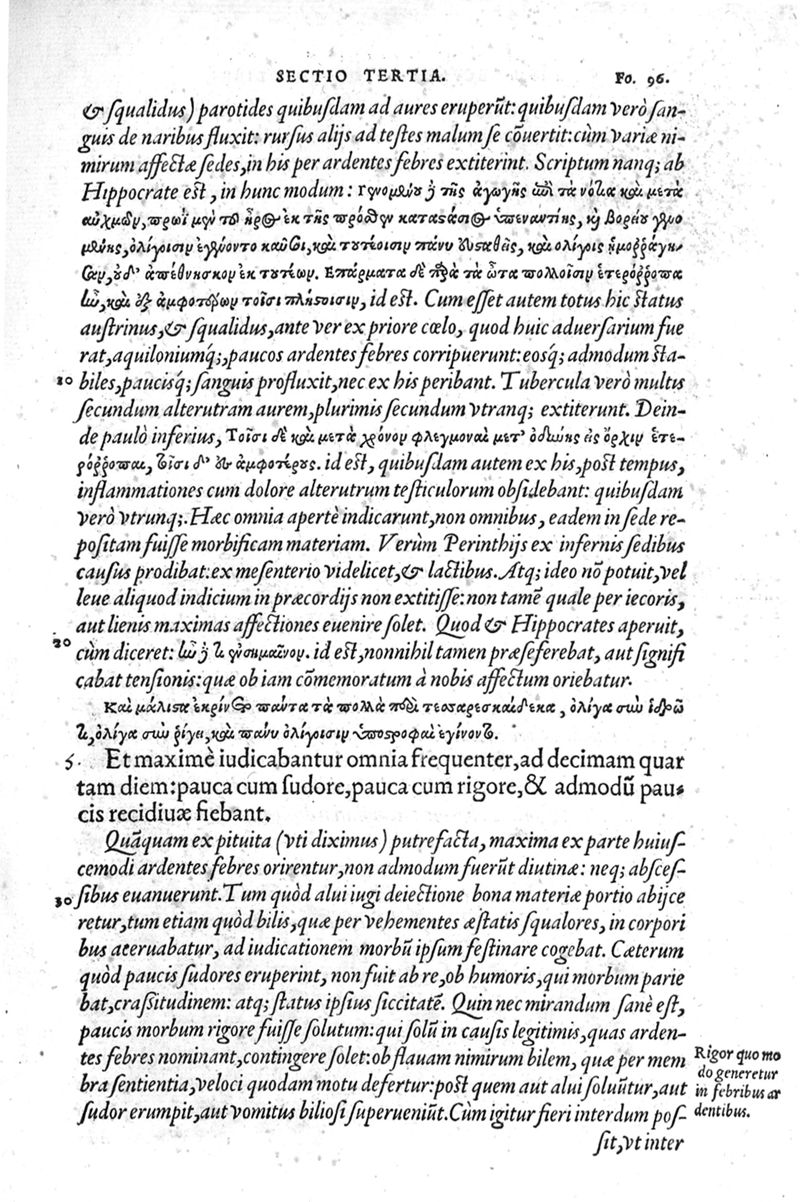 SECTIO TERTIA. Fo. 96.
& ſqualidus) parotides quibuſdam ad aures eruperũt: quibuſdam verò ſan-
guis de naribus fluxit: rurſus alijs ad teſtes malum ſe cõuertit: cùm variæ ni-
mirum affectæ ſedes, in his per ardentes febres extiterint. Scriptum nanq; ab
Hippocrate eſt, in hunc modum: γινομένου δὲ τῆς ἀγωγῆς ὅλης ἐπὶ τὰ νότια καὶ μετὰ
αὐχμῶν, πρωῒ μὲν τοῦ ἦρος ἐκ τῆς πρόσθεν καταστάσιος ὑπεναντίης, καὶ βορείου γενο
μένης, ὀλίγοισιν ἐγένοντο καῦσοι, καὶ τουτέοισιν πάνυ εὐσταθέες, καὶ ὀλίγοις ᾑμορράγη-
σεν, οὐδ' ἀπέθνησκον ἐκ τουτέων. Ἐπάρματα δὲ παρὰ τὰ ὦτα πολλοῖσιν ἑτερόρροπα
καὶ ἐξ ἀμφοτέρων τοῖσι πλείστοισιν, id eſt. Cum eſſet autem totus hic ſtatus
auſtrinus, & ſqualidus, ante ver ex priore cœlo, quod huic aduerſarium fue
rat, aquiloniumq́;, paucos ardentes febres corripuerunt: eosq́; admodum ſta-
10 biles, paucisq́; ſanguis profluxit, nec ex his peribant. Tubercula verò multis
ſecundum alterutram aurem, plurimis ſecundum vtranq; extiterunt. Dein-
de paulò inferius, Τοῖσι δὲ καὶ μετὰ χρόνον φλεγμοναὶ μετ' ὀδύνης ἐς ὄρχιν ἑτε-
ρόρροποι, τοῖσι δ' ἐς ἀμφοτέρους. id eſt, quibuſdam autem ex his, poſt tempus,
inflammationes cum dolore alterutrum teſticulorum obſidebant: quibuſdam
verò vtrunq;. Hæc omnia apertè indicarunt, non omnibus, eadem in ſede re-
poſitam fuiſſe morbificam materiam. Verùm Perinthijs ex infernis ſedibus
cauſus prodibat: ex meſenterio videlicet, & lactibus. Atq; ideo nõ potuit, vel
leue aliquod indicium in præcordijs non extitiſſe: non tamẽ quale per iecoris,
aut lienis maximas affectiones euenire ſolet. Quod & Hippocrates aperuit,
20 cùm diceret: ἦν δέ τι ἐνσημαῖνον. id eſt, nonnihil tamen præſeferebat, aut ſignifi
cabat tenſionis: quæ ob iam cõmemoratum à nobis affectum oriebatur.
Καὶ μάλιστα ἐκρίνετο πάντα τὰ πολλὰ περὶ τεσσαρεσκαίδεκα, ὀλίγα σὺν ἱδρῶ
τι, ὀλίγα σὺν ῥίγει, καὶ πάνυ ὀλίγοισιν ὑποστροφαὶ ἐγίνοντο.
5. Et maximè iudicabantur omnia frequenter, ad decimam quar
tam diem: pauca cum ſudore, pauca cum rigore, & admodũ pau-
cis recidiuæ fiebant.
Quãquam ex pituita (vti diximus) putrefacta, maxima ex parte huiuſ-
cemodi ardentes febres orirentur, non admodum fuerũt diutinæ: neq; abſceſ-
30 ſibus euanuerunt. Tum quòd alui iugi deiectione bona materiæ portio abijce
retur, tum etiam quòd bilis, quæ per vehementes æſtatis ſqualores, in corpori
bus aceruabatur, ad iudicationem morbũ ipſum feſtinare cogebat. Cæterum
quòd paucis ſudores eruperint, non fuit ab re, ob humoris, qui morbum parie
bat, craſſitudinem: atq; ſtatus ipſius ſiccitatẽ. Quin nec mirandum ſanè eſt,
paucis morbum rigore fuiſſe ſolutum: qui ſolũ in cauſis legitimis, quas arden-
tes febres nominant, contingere ſolet: ob flauam nimirum bilem, quæ per mem
bra ſentientia, veloci quodam motu defertur: poſt quem aut alui ſoluũtur, aut
ſudor erumpit, aut vomitus bilioſi ſuperueniũt. Cùm igitur fieri interdum poſ-
ſit, vt inter
Rigor quo mo
do generetur
in febribus ar
dentibus.